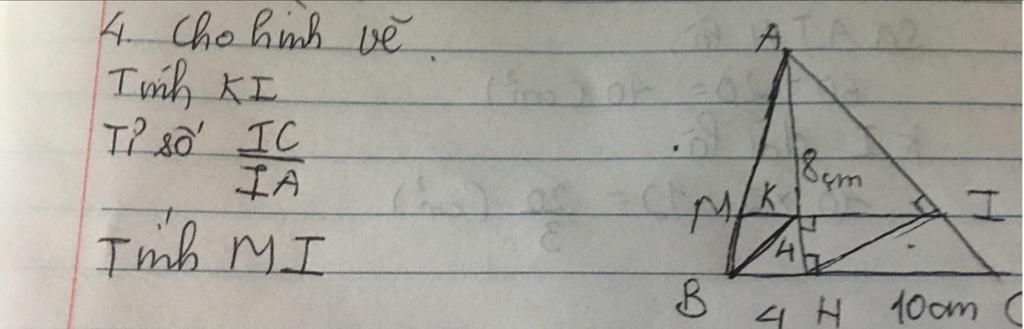 4. Cho hình vẽ
Tính KI
Tỉ số IC
IA
Tính MI
A
8cm
M K I
4
B 4 H 10cm C